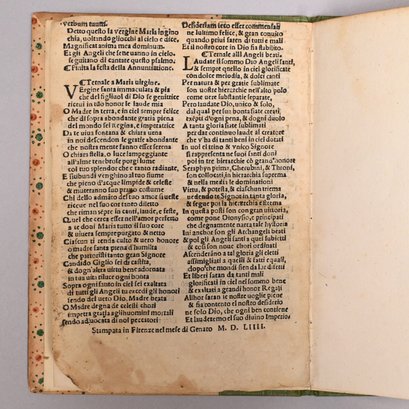 verbum tuum.
Detto questo la vergine Maria ingino
chia, voltando gliocchi al cielo e dice,
Magnificat anima mea dominum.
Et gli Angeli che sene vanno in cielo,
se guitando di cantare questo psalmo.
Finita la festa della Annuntiatione.
TErnale a Maria vergine.
VErgine santa immaculata & pia
che del figliuol di Dio se genitrice
ricui in te la humanità sua
O Madre in terra, e in ciel sempre felice
che di sopra abondante gratia piena
del mondo sei regina, e imperatrice
Da te viua fontana & chiara uena
in noi descendon le gratie abondante
che nostra mente fanno esser serena
O chiara stella, o luce lampeggiante
all'alme ne tenebre porge lume
col tuo splendor che e tanto radiante.
E risplendi verghino al tuo fiume
che pieno d'acque limpide & celeste
& muteranno suo prauo costume
Chi dello admirò del tuo amor si ueste
sente nel cor tanta gratia, & virtute
che ritmo sempre in canti, laude, e feste,
Quel che cerca esser nell'amor perfetto
a te deuoi Maria tutto il suo core
& uiuera sempre purgato & netto
Ciascun ti renda salute & uero honore
o madre santa piena d'humiltà
che partoristi tanto gran Signore
Candido Giglio sei di castità,
& dogn'altra uirtu bene adornata
in tua uita rilucè ogni bontà
Sopra ogni santo in ciel sei exaltata
di tutti gli Angeli tu excedi gli honori
del uero Dio, Madre beata
O Madre degna de celesti chori
impetra gratia agli huomini mortali
sendo aduocata di noi peccatori
Desideriam teco esser commensali
ne lultimo felice, & gran conuito
quando priui saren di tutti e mali
Et il nostro core in Dio fia stabilito.
TErnale alli Angeli beati.
LAudate il sommo Dio Angeli santi,
& sempre quello in ciel glorificate
con dolce melodia, & dolci canti
Per natura & per gratia sublimati
son gli uostri esser nel sommo polo
come uere substantie separati
Pero laudate Dio, unico & solo,
dal qual per sua bontà siate creati
exempti d'ogni pena, & dogni duolo
A tanta gloria siate sublimati
per dar continuo laude al creatore
che v'ha di tanti doni adornati
In noi el trino & vnico Signore
si rappresenta ne suoi santi doni
poi in tre hierarchie cò grand'honore
Seraphini prima, Cherubini, & Throni,
son collocati in hierarchia suprema
& nella media le dominationi
Virtu, & potesta, e ciaschun triema
uedendo te Signor in tanta gloria,
& segue poi la hierarchia extrema
In questa posti son con gran uittoria,
come pone Dionysio, e principati
che dignamente narra tale historia
Ini anchor son gli Archangeli beati
& poi gli Angeli santi a quei subietti
& cosi son nove chori ordinati
Ascenderano a tal gloria gli eletti
assimigliati a quelli & fatti eguali
E dal mondo sien da lor diletti
Et liberi saran da tanti mali
glorificati in ciel nel sommo bene
& exaltati a grandi honor Regali
Allhor saran le nostre uoglie piene
& fia contento ogni nostro desire
ne solo Dio, che ogni ben contiene
Et laudaremo el suo diuino Imperio
Stampata in Firenze nel mese di Genaio M. D. LIIII.